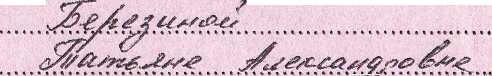 Березиной
Татьяне Александровне